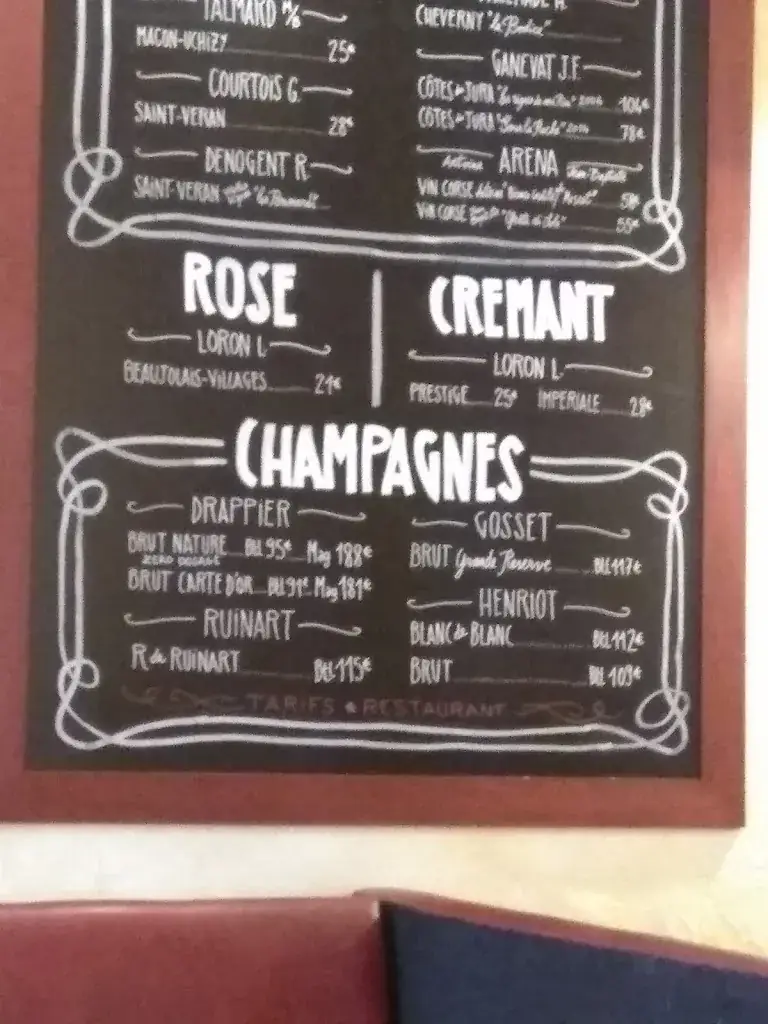 TALMARD M/B
MACON-UCHIZY 25€
COURTOIS G.
SAINT-VERAN 28€
DENOGENT R.
SAINT-VERAN
CHEVERNY
GANEVAT J.F.
CÔTES du JURA 104€
CÔTES du JURA 78€
Antoine ARENA Jean-Baptiste
VIN CORSE
VIN CORSE 55€
ROSE
LORON L.
BEAUJOLAIS-VILLAGES 21€
CREMANT
LORON L.
PRESTIGE 25€ IMPERIALE 28€
CHAMPAGNES
DRAPPIER
BRUT NATURE Btl 95€ Mag 188€
ZERO DOSAGE
BRUT CARTE D'OR Btl 91€ Mag 181€
RUINART
R de RUINART Btl 115€
GOSSET
BRUT Grande Reserve Btl 117€
HENRIOT
BLANC de BLANC Btl 112€
BRUT Btl 109€
TARIFS RESTAURANT